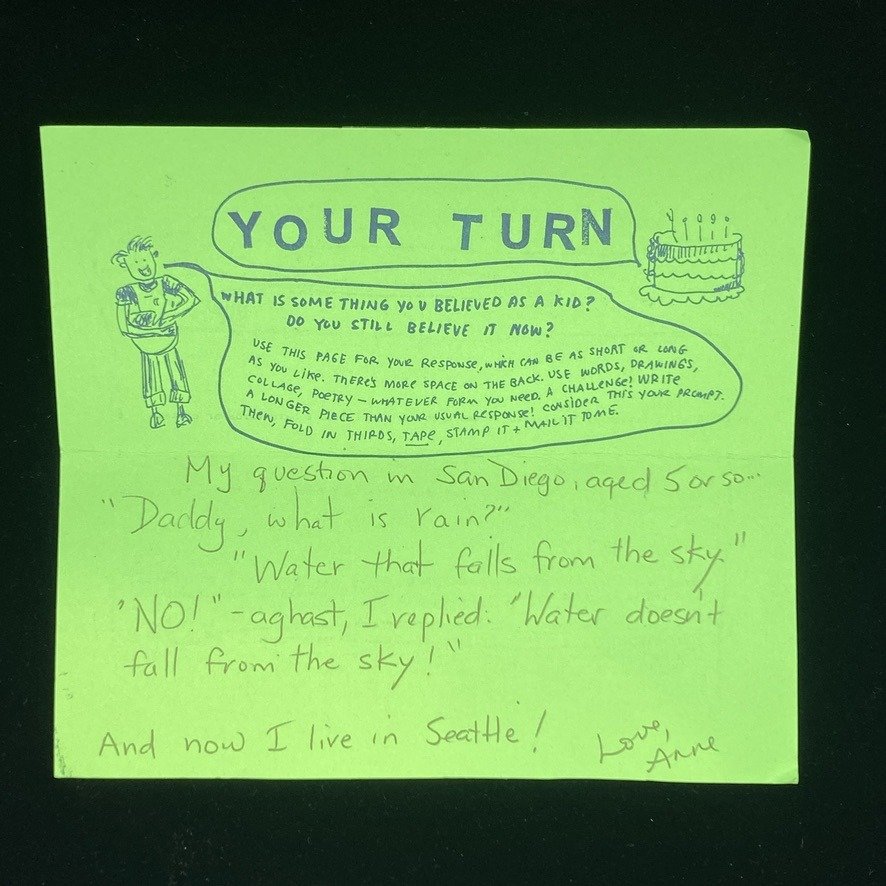 YOUR TURN
WHAT IS SOMETHING YOU BELIEVED AS A KID?
DO YOU STILL BELIEVE IT NOW?
USE THIS PAGE FOR YOUR RESPONSE, WHICH CAN BE AS SHORT OR LONG
AS YOU LIKE. THERE'S MORE SPACE ON THE BACK. USE WORDS, DRAWINGS,
COLLAGE, POETRY – WHATEVER FORM YOU NEED. A CHALLENGE! WRITE
A LONGER PIECE THAN YOUR USUAL RESPONSE! CONSIDER THIS YOUR PROMPT.
THEN, FOLD IN THIRDS, TAPE, STAMP IT + MAIL IT TO ME.
My question in San Diego, aged 5 or so...
"Daddy, what is rain?"
"Water that falls from the sky"
"NO!" - aghast, I replied. "Water doesn't
fall from the sky!"
And now I live in Seattle!
Love,
Anne